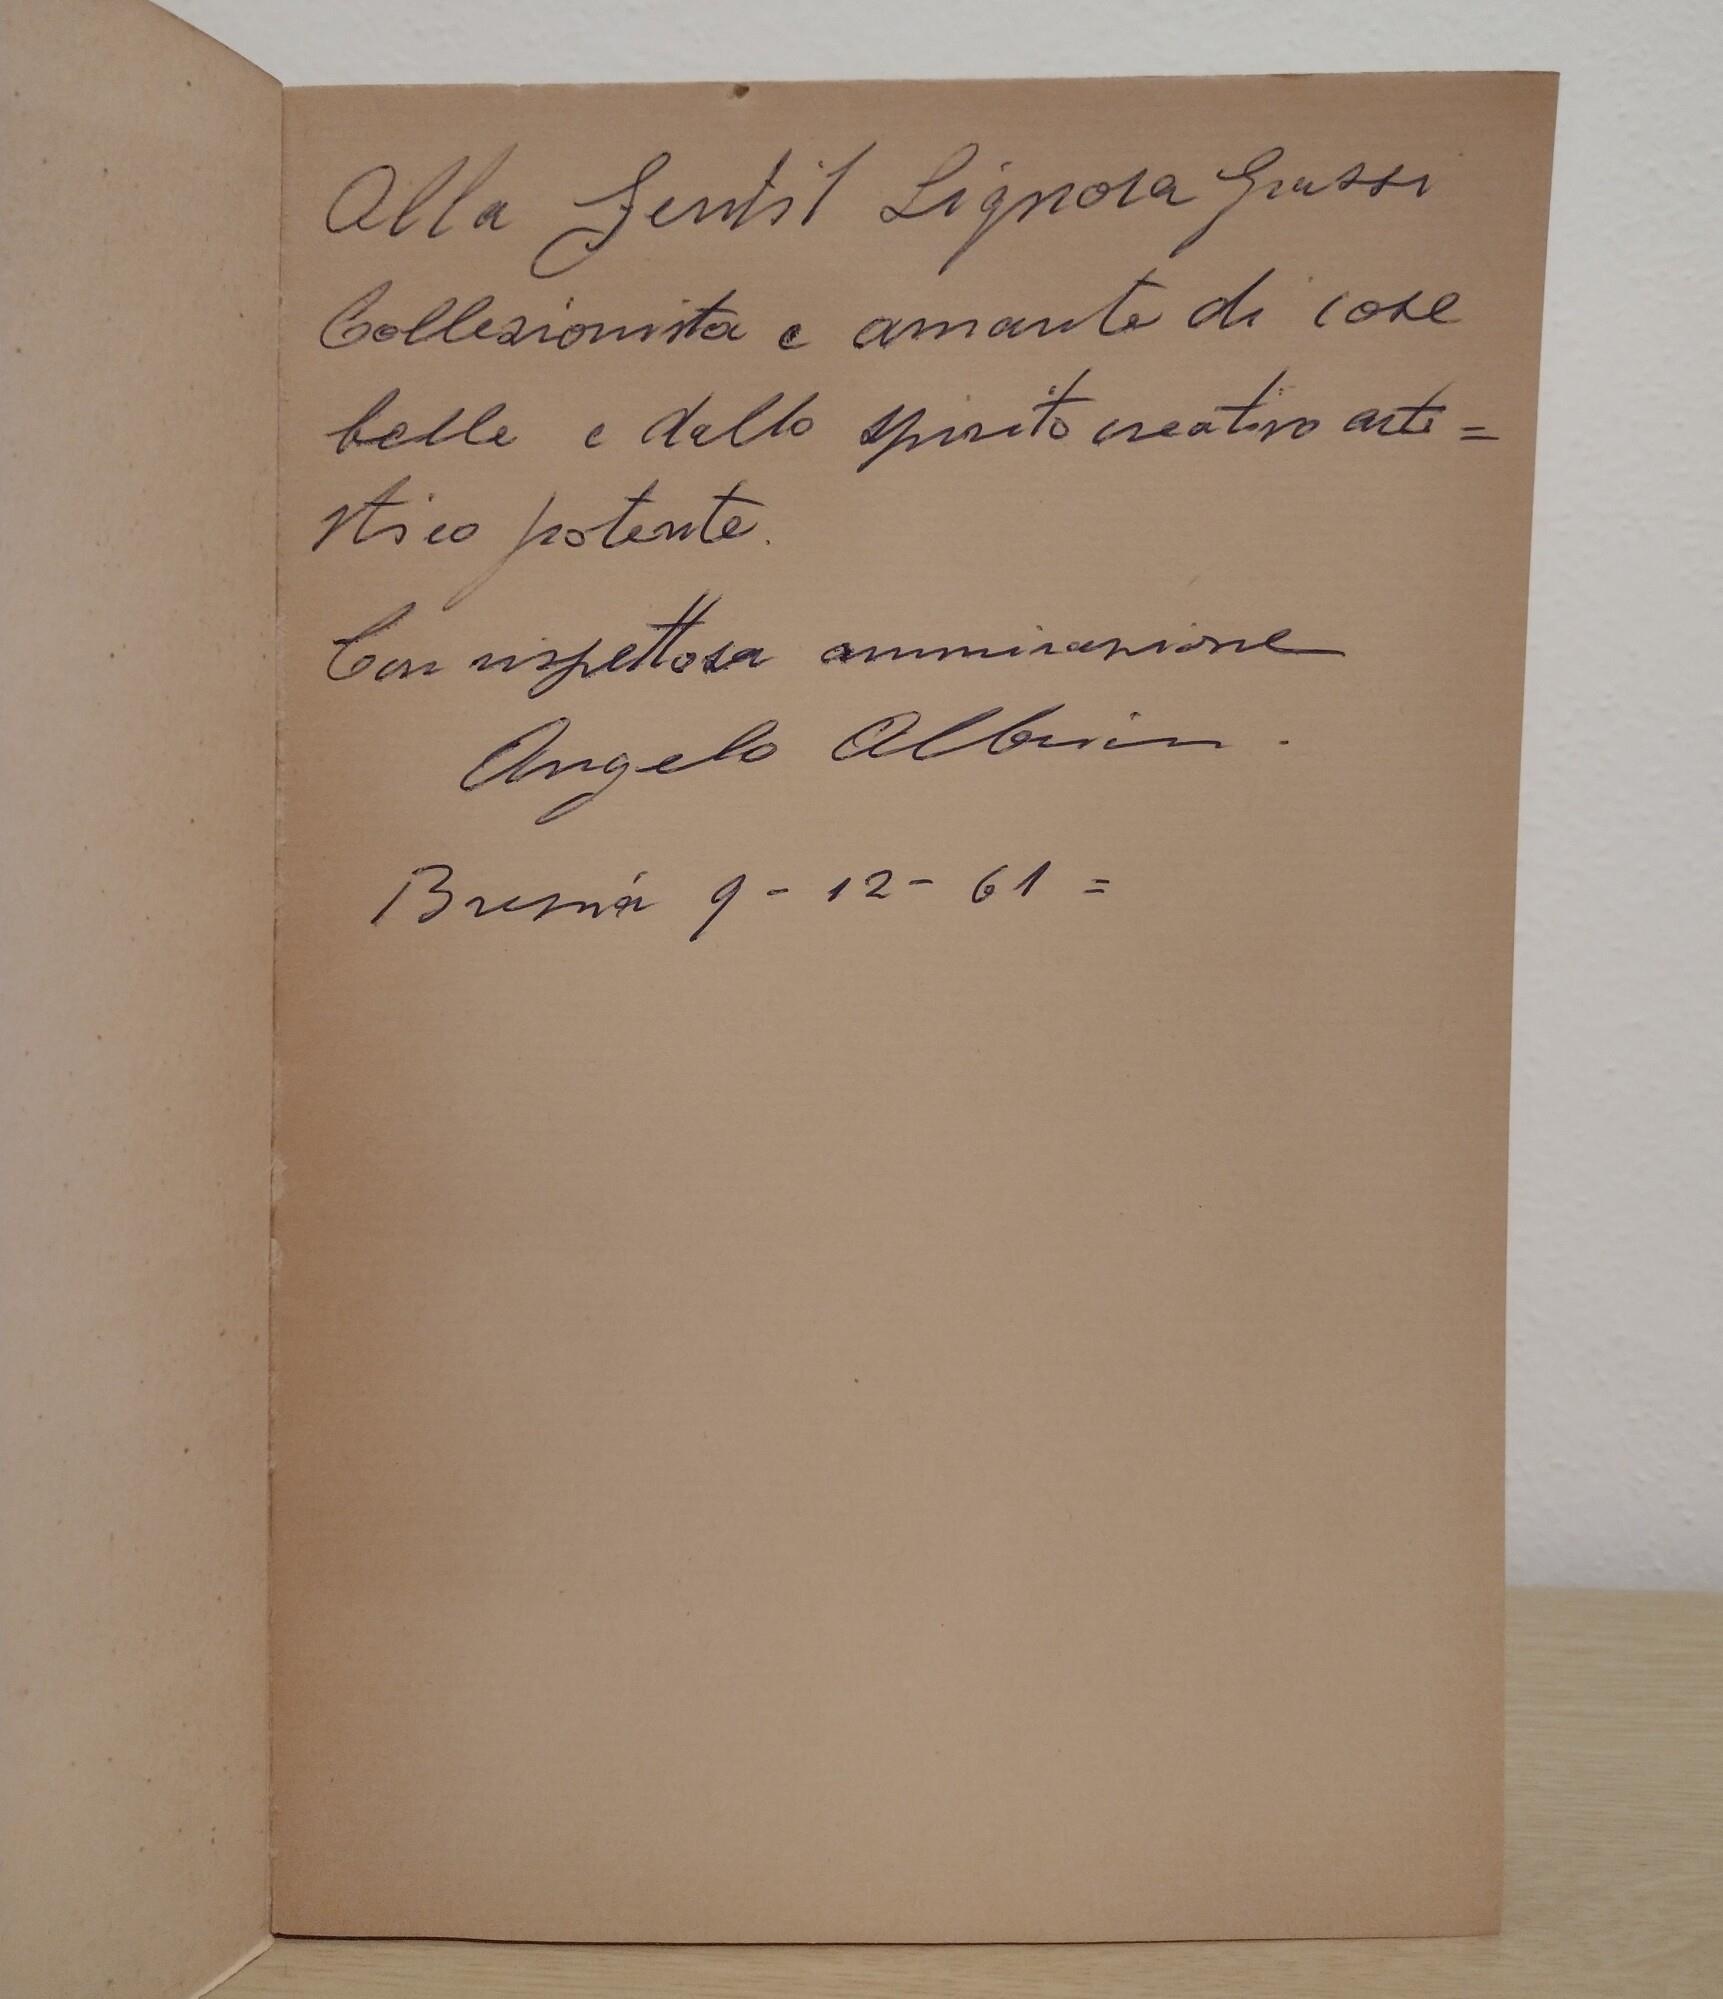 Alla Gentil Signora Grassi
Collezionista e amante di cose
belle e dallo spirito creativo arti=
stico potente.
Con rispettosa ammirazione
Angelo Albrici.
Brescia 9 - 12 - 61 =